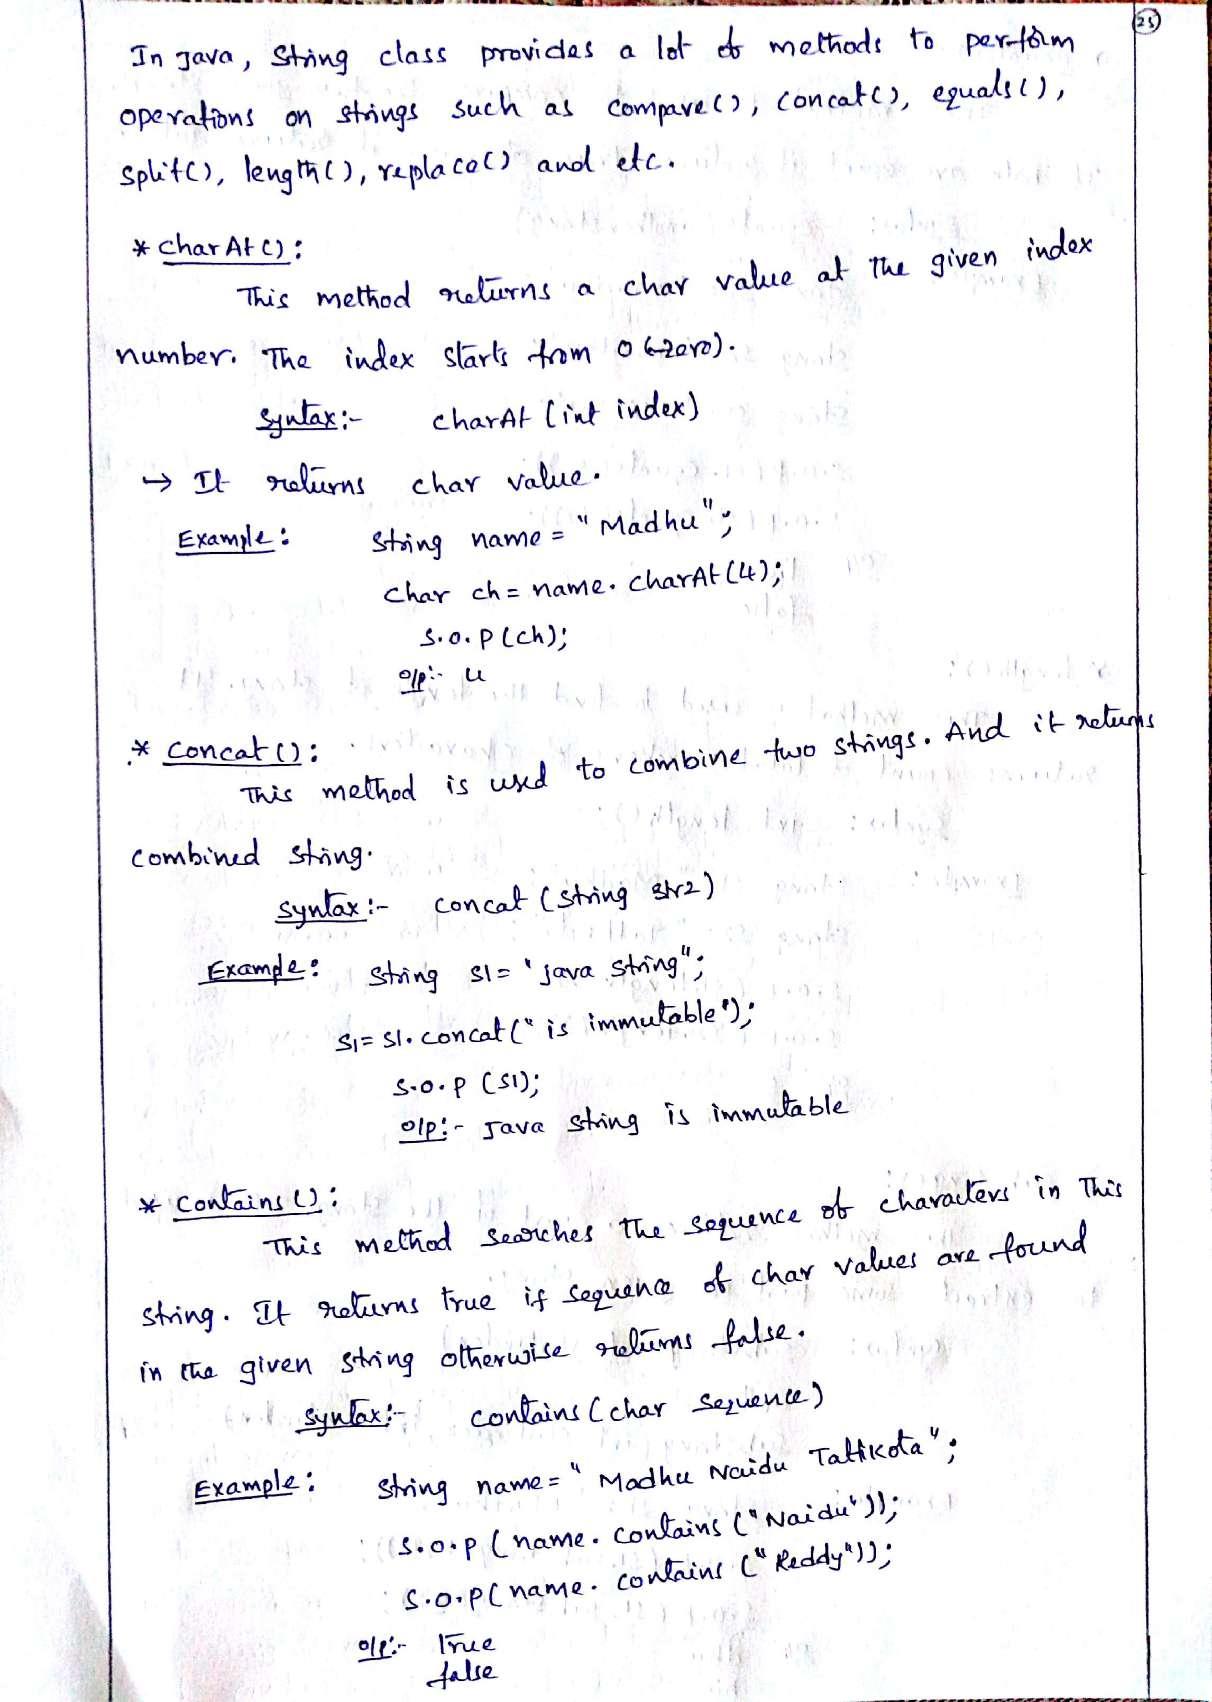 25
In Java, String class provides a lot of methods to perform
operations on strings such as compare(), concat(), equals(),
split(), length(), replace() and etc.
* charAt():
This method returns a char value at the given index
number. The index starts from 0 (zero).
Syntax:- charAt (int index)
→ It returns char value.
Example: String name = "Madhu";
char ch = name. charAt(4);
S.o.p(ch);
o/p:- u
* concat():
This method is used to combine two strings. And it returns
combined string.
syntax:- concat (string str2)
Example: String s1 = "java string";
s1 = s1. concat(" is immutable");
S.o.p (s1);
o/p:- Java string is immutable
* contains():
This method searches the sequence of characters in this
string. It returns true if sequence of char values are found
in the given string otherwise returns false.
syntax:- contains (char sequence)
Example: String name = " Madhu Naidu Tattikota";
S.o.p (name. contains ("Naidu"));
S.o.p(name. contains ("Reddy"));
o/p:- True
false